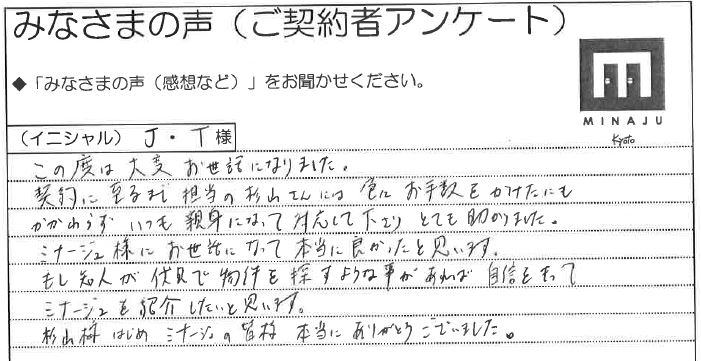 みなさまの声（ご契約者アンケート）
◆「みなさまの声（感想など）」をお聞かせください。
MINAJU
Kyoto
（イニシャル） J・T様
この度は大変お世話になりました。
契約に至るまで担当の杉山さんには色々お手数をかけたにも
かかわらず いつも親身になって対応して下さり とても助かりました。
ミナージュ様にお世話になって本当に良かったと思います。
もし知人が伏見で物件を探すような事があれば 自信をもって
ミナージュを紹介したいと思います。
杉山様はじめ ミナージュの皆様 本当にありがとうございました。